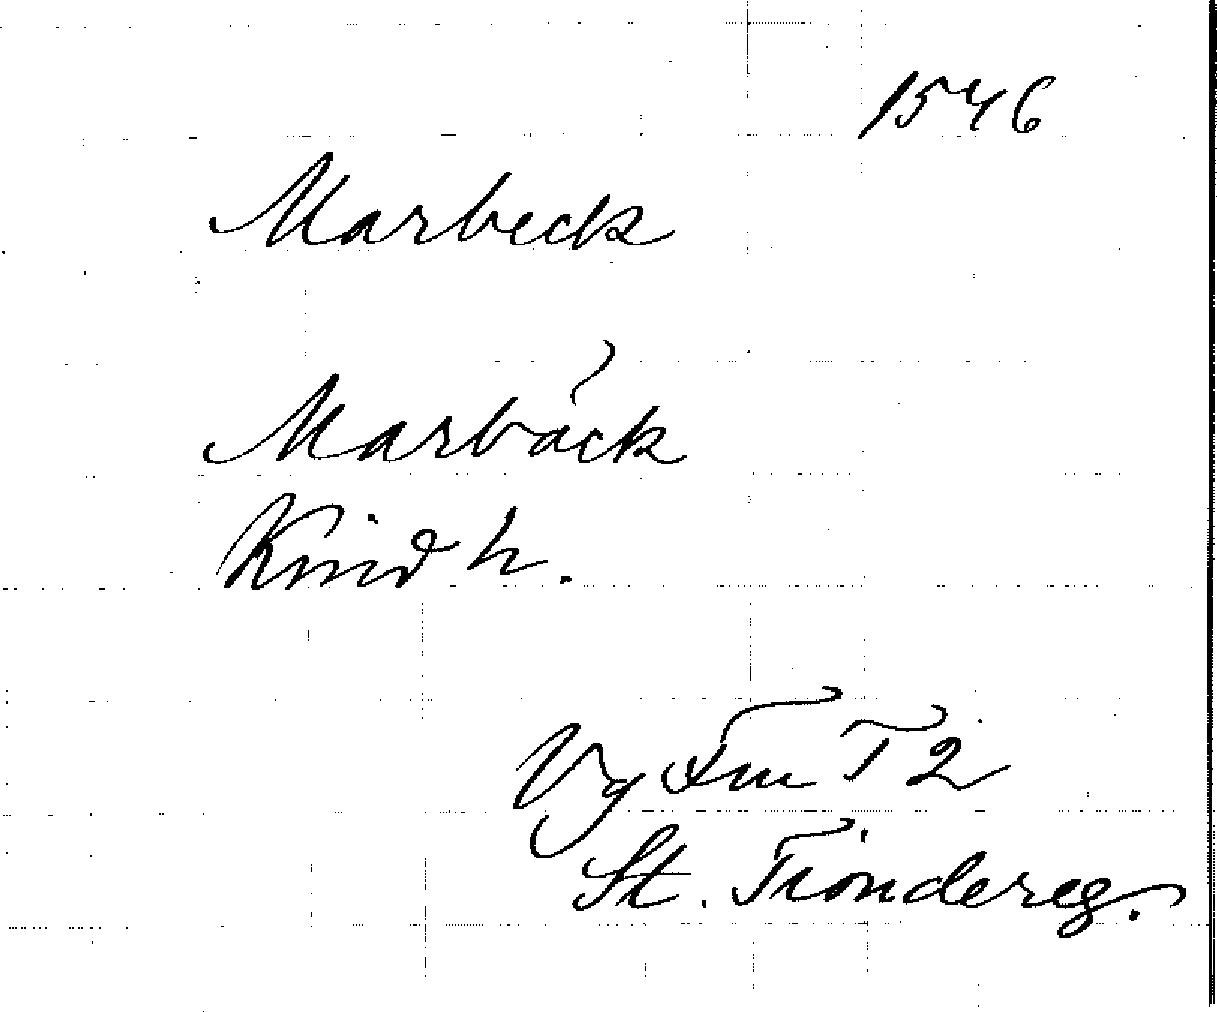 1546
Marbeck
Marbäck
Kind h.
Vg Fm T 2
St. Tiondereg.